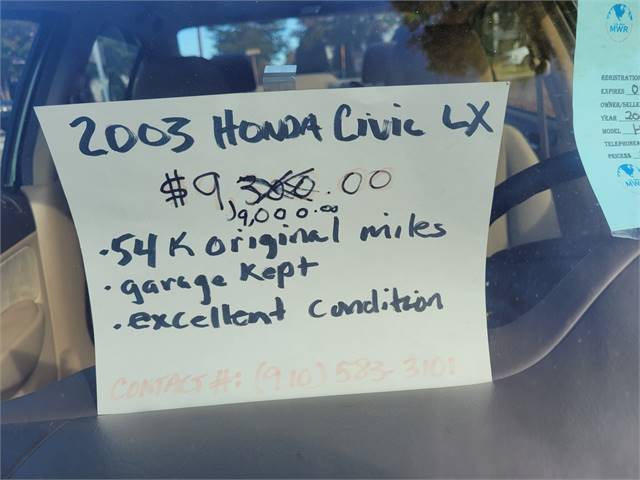 2003 HONDA Civic LX
$9,300.00
9,000.00
·54K original miles
·garage kept
·excellent condition
CONTACT#: (910) 583-3101
MWR
REGISTRATION
EXPIRES 0
OWNER/SELLE
YEAR 20
MODEL H
TELEPHONE#
PRICE$$
MW